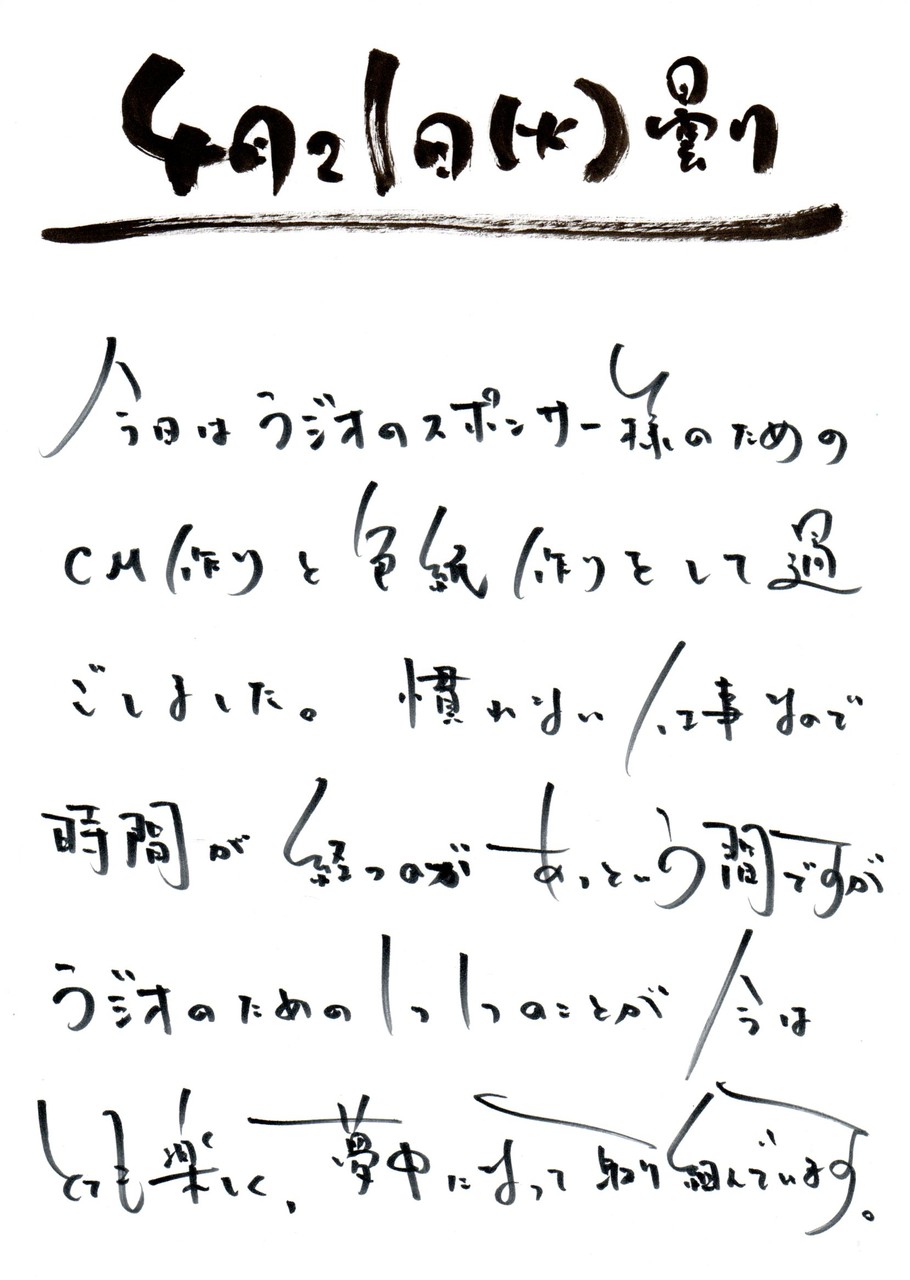 4月21日(火)曇り
今日はラジオのスポンサー様のための
CM作りと色紙作りをして過
ごしました。慣れない仕事なので
時間が経つのがあっという間ですが
ラジオのための1つ1つのことが今は
とても楽しく、夢中になって取り組んでいます。